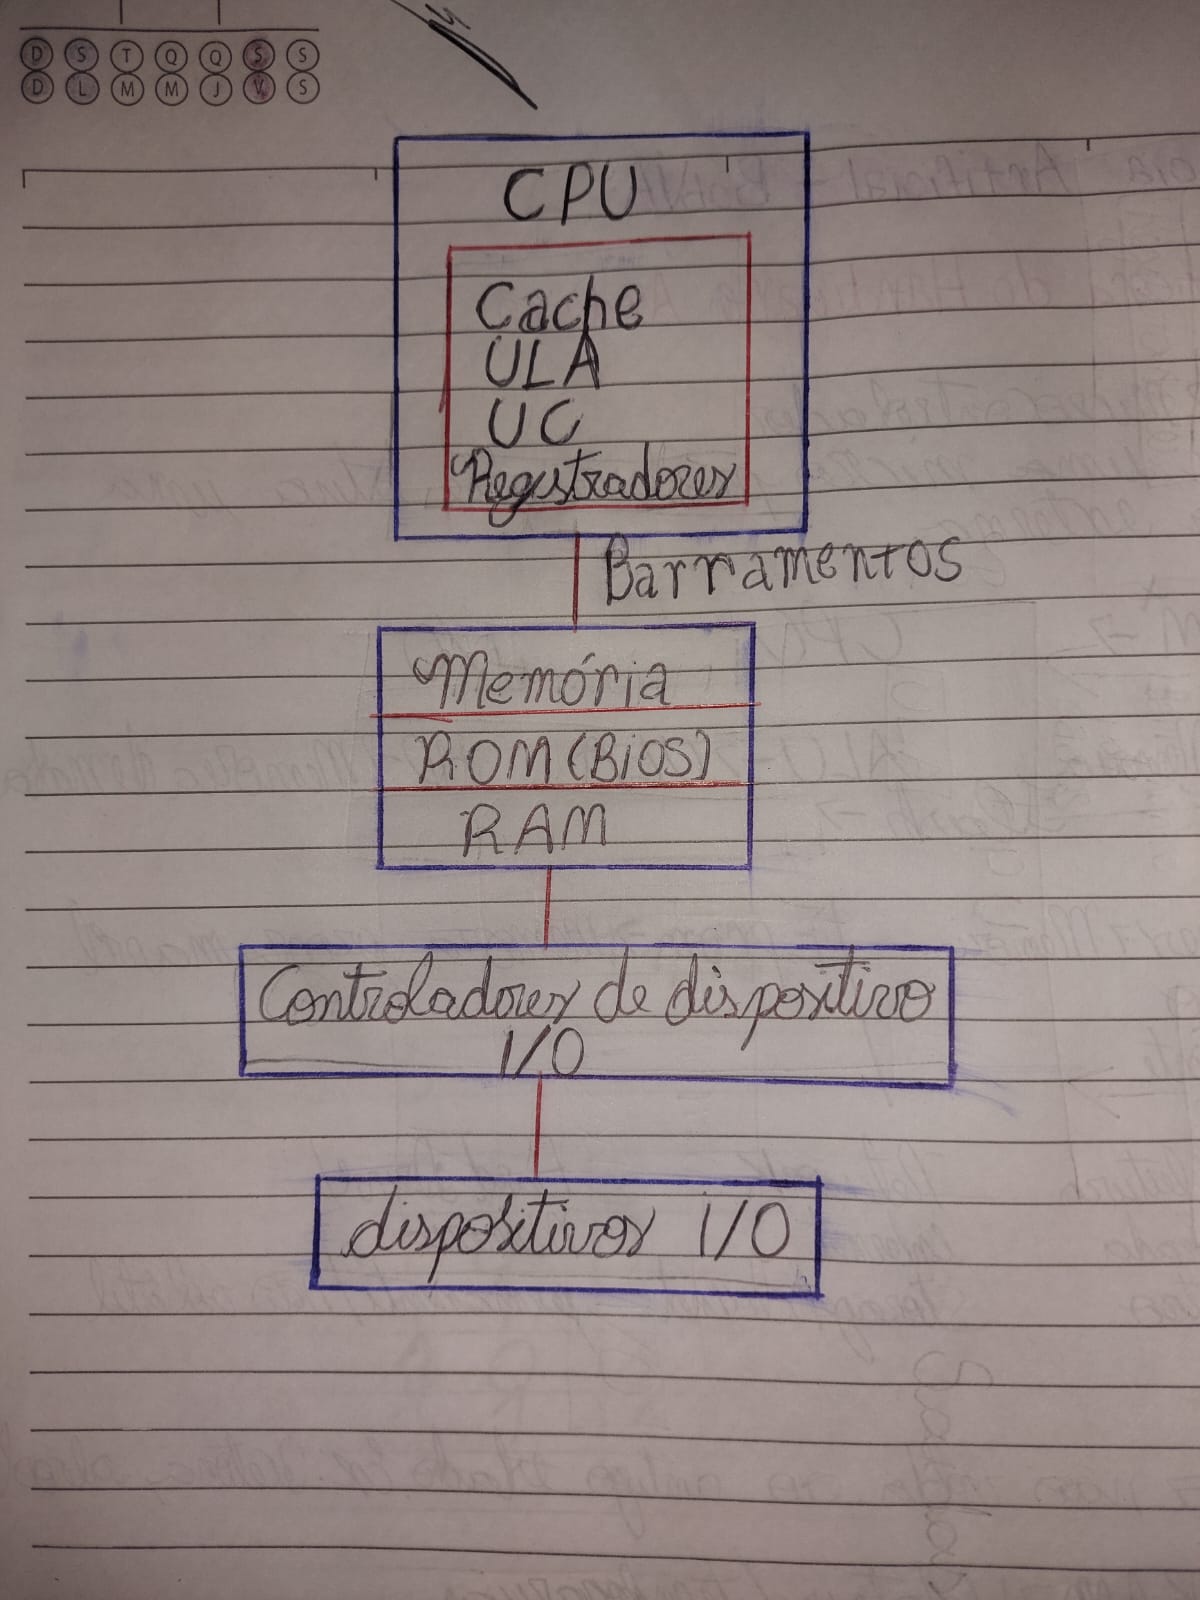 D S T Q Q S S
D L M M J V S
CPU
Cache
ULA
UC
Registradores
Barramentos
Memória
ROM (BiOS)
RAM
Controladores de dispositivo
I/O
dispositivos i/O